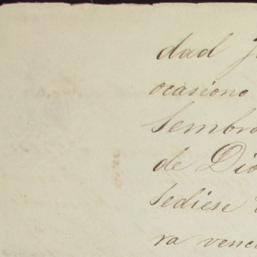 dad
ocasiono
Sembra
de Dio
sediese
ra venc